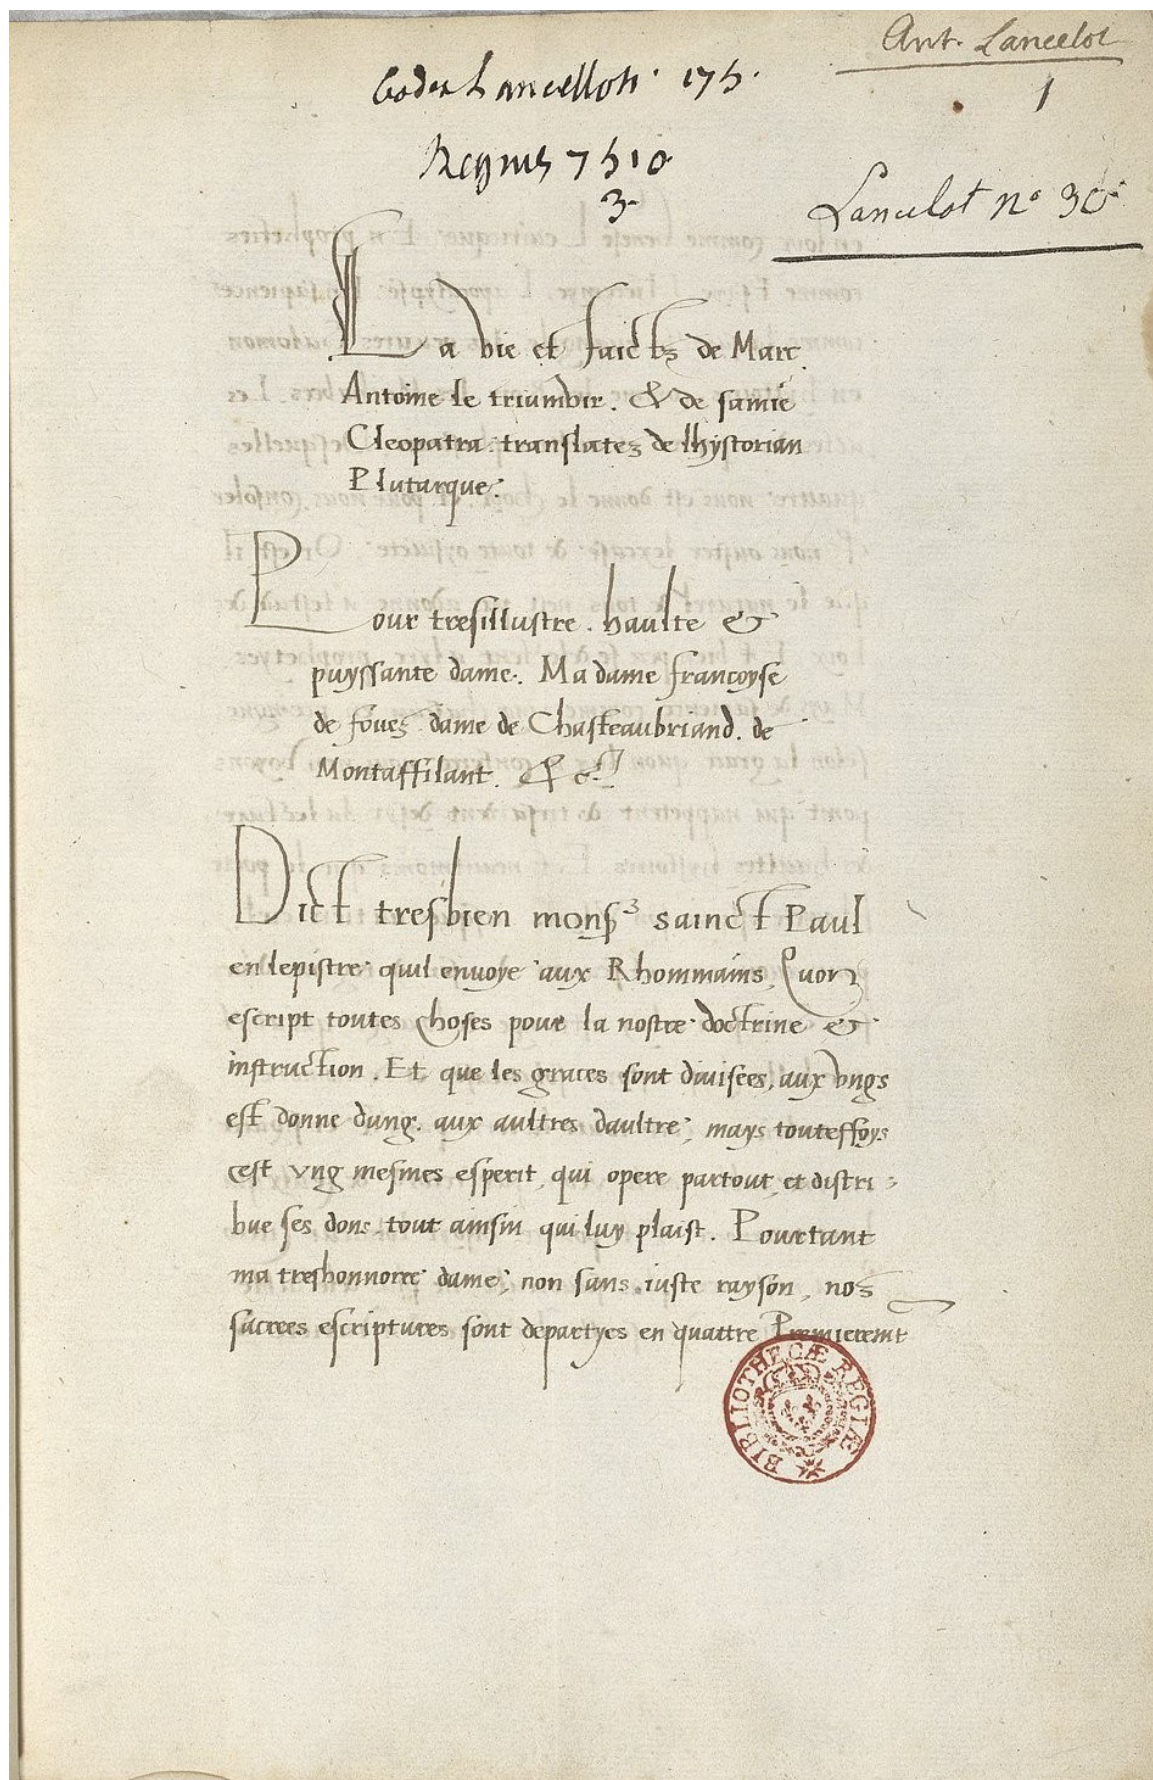 Ant. Lancelot
1
Codex Lancelloti 175.
Regius 7510
3.
Lancelot nº 30
La vie et faictz de Marc
Antoine le triumvir. & de samie
Cleopatra: translatez de lhystorian
Plutarque.
Pour tresillustre. haulte &
puyssante dame. Madame francoyse
de fouez dame de Chasteaubriand. de
Montaffilant. &c.
Dict tresbien monsr sainct Paul
en lepistre quil envoye aux Rhommains, Quon
escript toutes choses pour la nostre doctrine &
instruction. Et que les graces sont divisees, aux vngs
est donne dung. aux aultres daultre, mays touteffoys
cest vng mesmes esperit, qui opere partout, et distri-
bue ses dons tout ainsin qui luy plaist. Pourtant
ma treshonnoree dame, non sans iuste rayson, nos
sacrees escriptures sont departyes en quattre Premieremt
BIBLIOTHECÆ REGIÆ